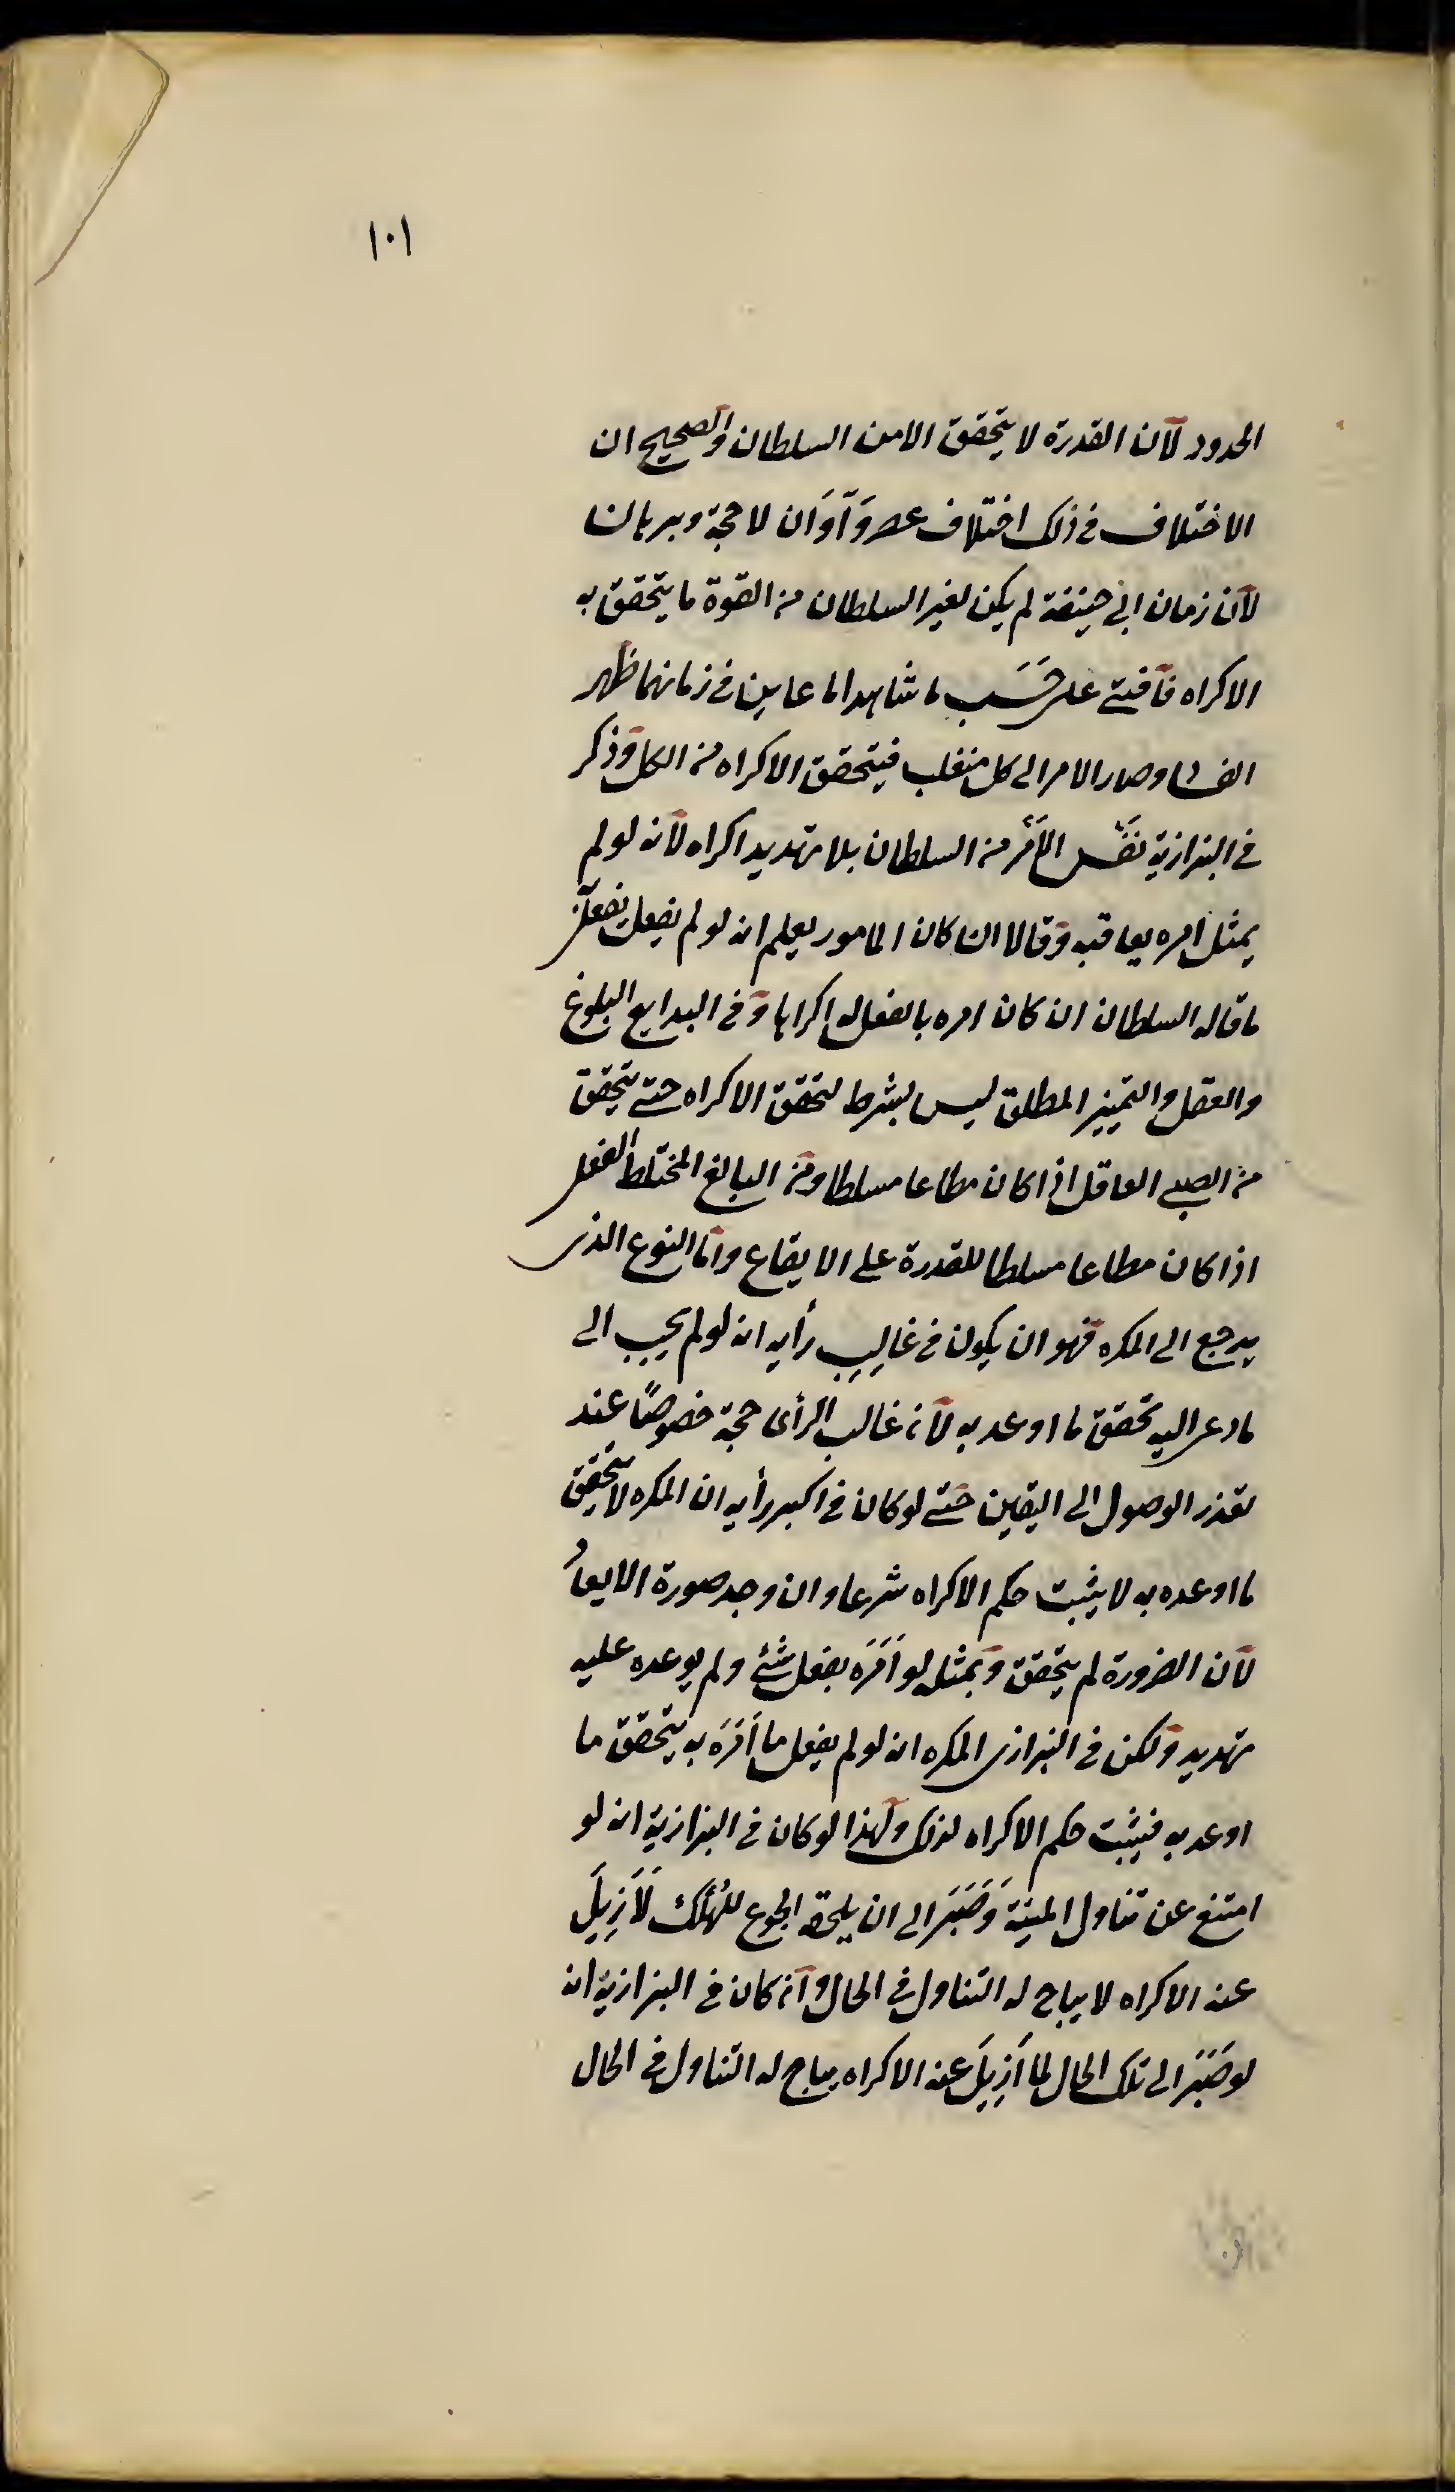 ١٠١
الحدود لأن القدرة لا يتحقق الا من السلطان والصحيح ان
الاختلاف في ذلك اختلاف عصر وَآوَان لا حجة وبرهان
لأن زمان ابي حنيفة لم يكن لغير السلطان من القوة ما يتحقق به
الاكراه فأفتى على حَسَب ما شاهد اما عاين في زمانهما ظهر
الفساد وصار الامر الى كل متغلب فيتحقق الاكراه من الكل وذكر
في البزازية نَفْس الأَمْر من السلطان بلا تهديد اكراه لأنه لو لم
يمثل امره يعاقبه وقالا ان كان المامور يعلم انه لو لم يفعل يفعل
ما قاله السلطان ان كان امره بالفعل له اكراها وفي البدايع البلوغ
والعقل والتمييز المطلق ليس بشرط لتحقق الاكراه حتى يتحقق
من الصبي العاقل اذا كان مطاعا مسلطا ومن البالغ المختلط العقل
اذا كان مطاعا مسلطا للقدرة على الايقاع واما النوع الذى
يرجع الى المكره فهو ان يكون في غالِبِ رأيه انه لو لم يجب الى
ما دعى اليه تحقق ما اوعد به لأن غالب الرأى حجة خصوصًا عند
تعذر الوصول الى اليقين حتى لو كان في اكبر رأيه ان المكره لا يحقق
ما اوعده به لا يثبت حكم الاكراه شرعا وان وجد صورة الايعاد
لأن الضرورة لم يتحقق وبمثله لو اَمَرَه بفعل شئ ولم يوعده عليه
تهديد ولكن في البزازى المكره انه لو لم يفعل ما اَمَرَه به يتحقق ما
اوعد به فيثبت حكم الاكراه لذلك ولهذا لو كان في البزازية انه لو
امتنع عن تناول الميتة وَصَبَرَ الى ان يلحقه الجوع للهلك لَاُزِيلَ
عنه الاكراه لا يباح له التناول في الحال وأن كان في البزازية انه
لو صَبَرَ الى تلك الحال لما اُزِيلَ عنه الاكراه يباح له التناول في الحال